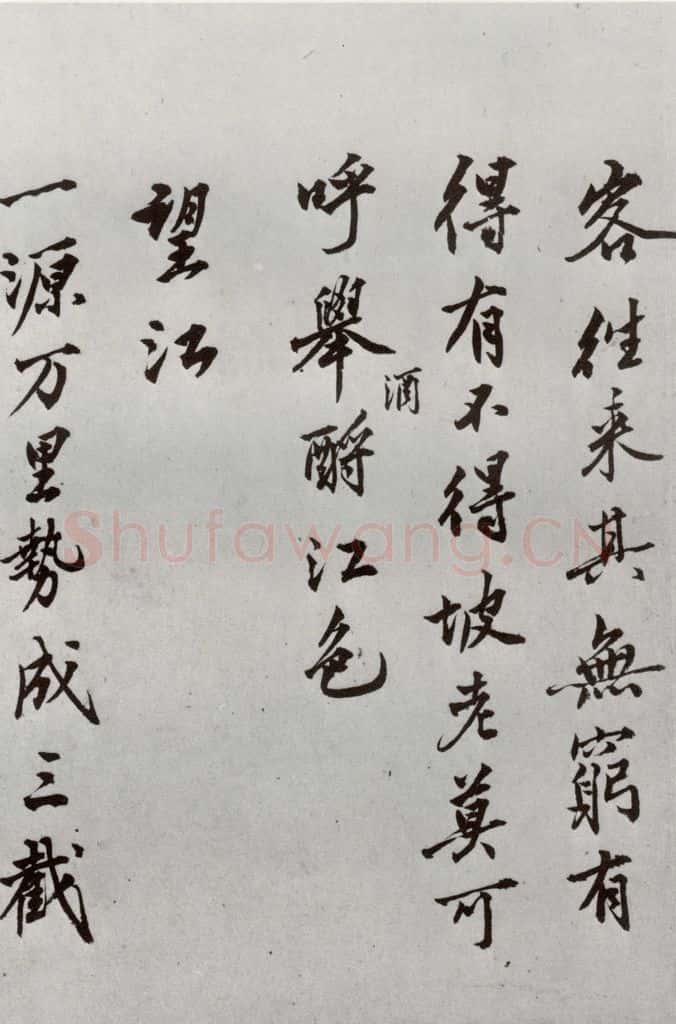 客往来其無窮有
得有不得坡老莫可
呼舉酒酹江色
望江
一源万里勢成三截
Shufawang.CN